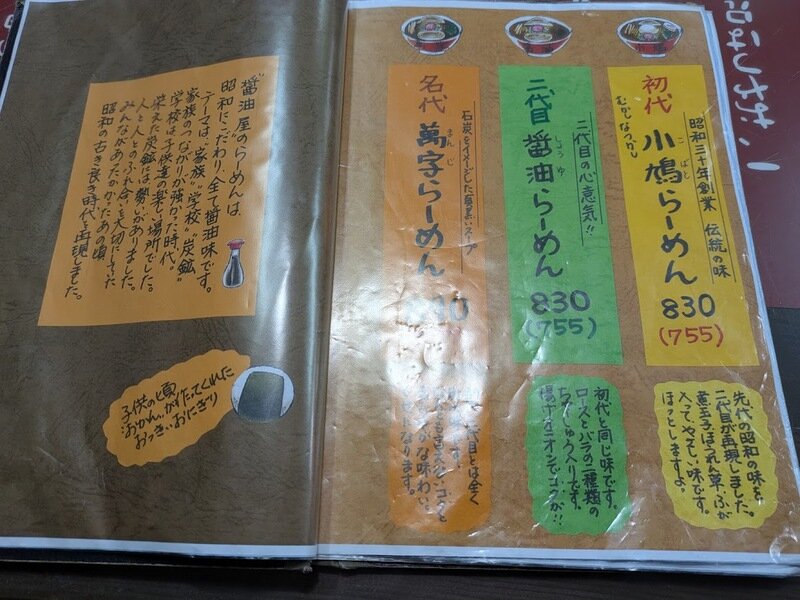 "醤油屋"のらーめんは、
昭和にこだわり、全て醤油味です。
テーマは、"家族""学校""炭鉱"
家族のつながりが強かった時代。
学校は子供達の楽しい場所でした。
栄えた炭鉱には勢いがありました。
人と人とのふれ合いを大切にしてた
みんながあたたかかったあの頃
昭和の古き良き時代を再現しました。
子供の頃
おかんが作ってくれた
おっきいおにぎり
昭和三十年創業 伝統の味
初代 小鳩らーめん
こばと
むかしなつかし
830
(755)
先代の昭和の味を
二代目が再現しました。
薫玉子ほうれん草、ふが
入ってやさしい味です。
ほっとしますよ。
二代目の心意気!!
二代目 醤油らーめん
しょうゆ
830
(755)
初代と同じ味です。
ロースとバラの二種類の
ちゃしゅう入りです。
揚げネギオンでコクが!!
石炭をイメージした真黒いスープ
名代 萬字らーめん
まんじ
二代目とは全く
コクと
な味わい、
になります。